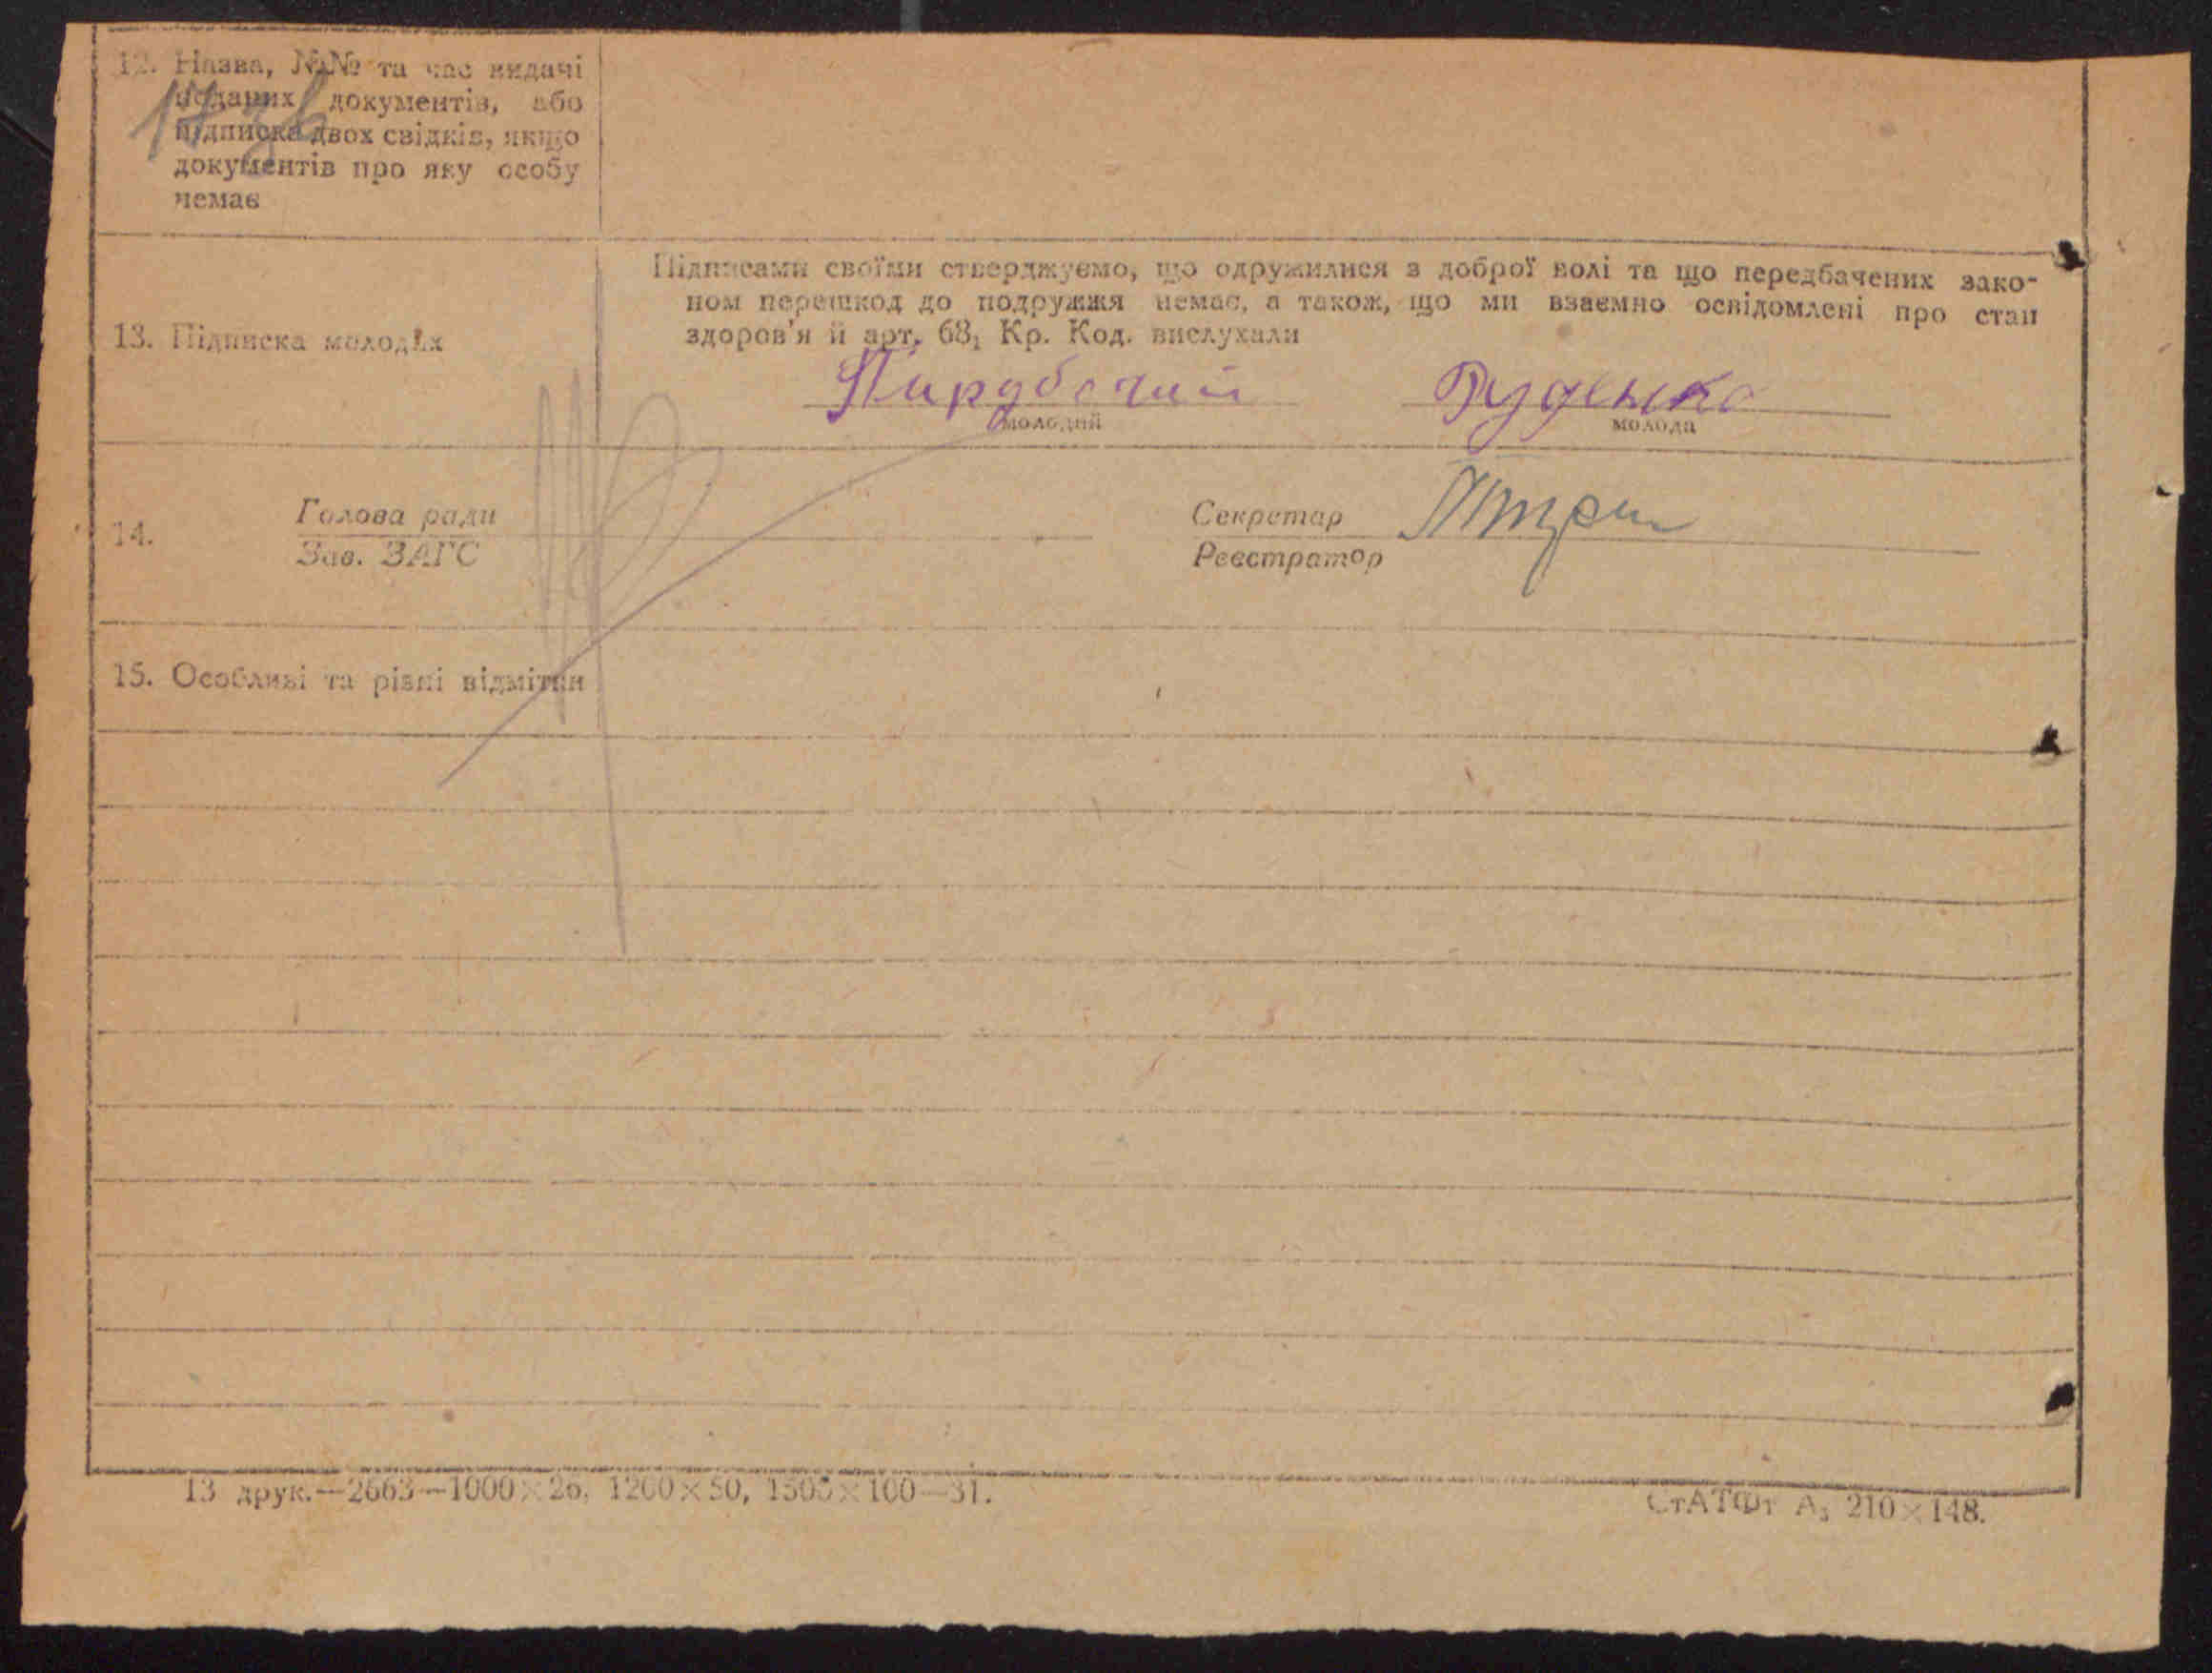 12. Назва, №№ та час видачі
поданих документів, або
підписка двох свідків, якщо
документів про яку особу
немає
13. Підписка молодих
Підписами своїми стверджуємо, що одружилися з доброї волі та що передбачених зако-
ном перешкод до подружжя немає, а також, що ми взаємно освідомлені про стан
здоров'я й арт. 68₁ Кр. Код. вислухали
Руденко
молодий молода
14.
Голова ради
Зав. ЗАГС
Секретар
Реєстратор
15. Особливі та різні відмітки
13 друк.—2663—1000×26, 1200×50, 1500×100—31.
СтАТФт А₅ 210×148.